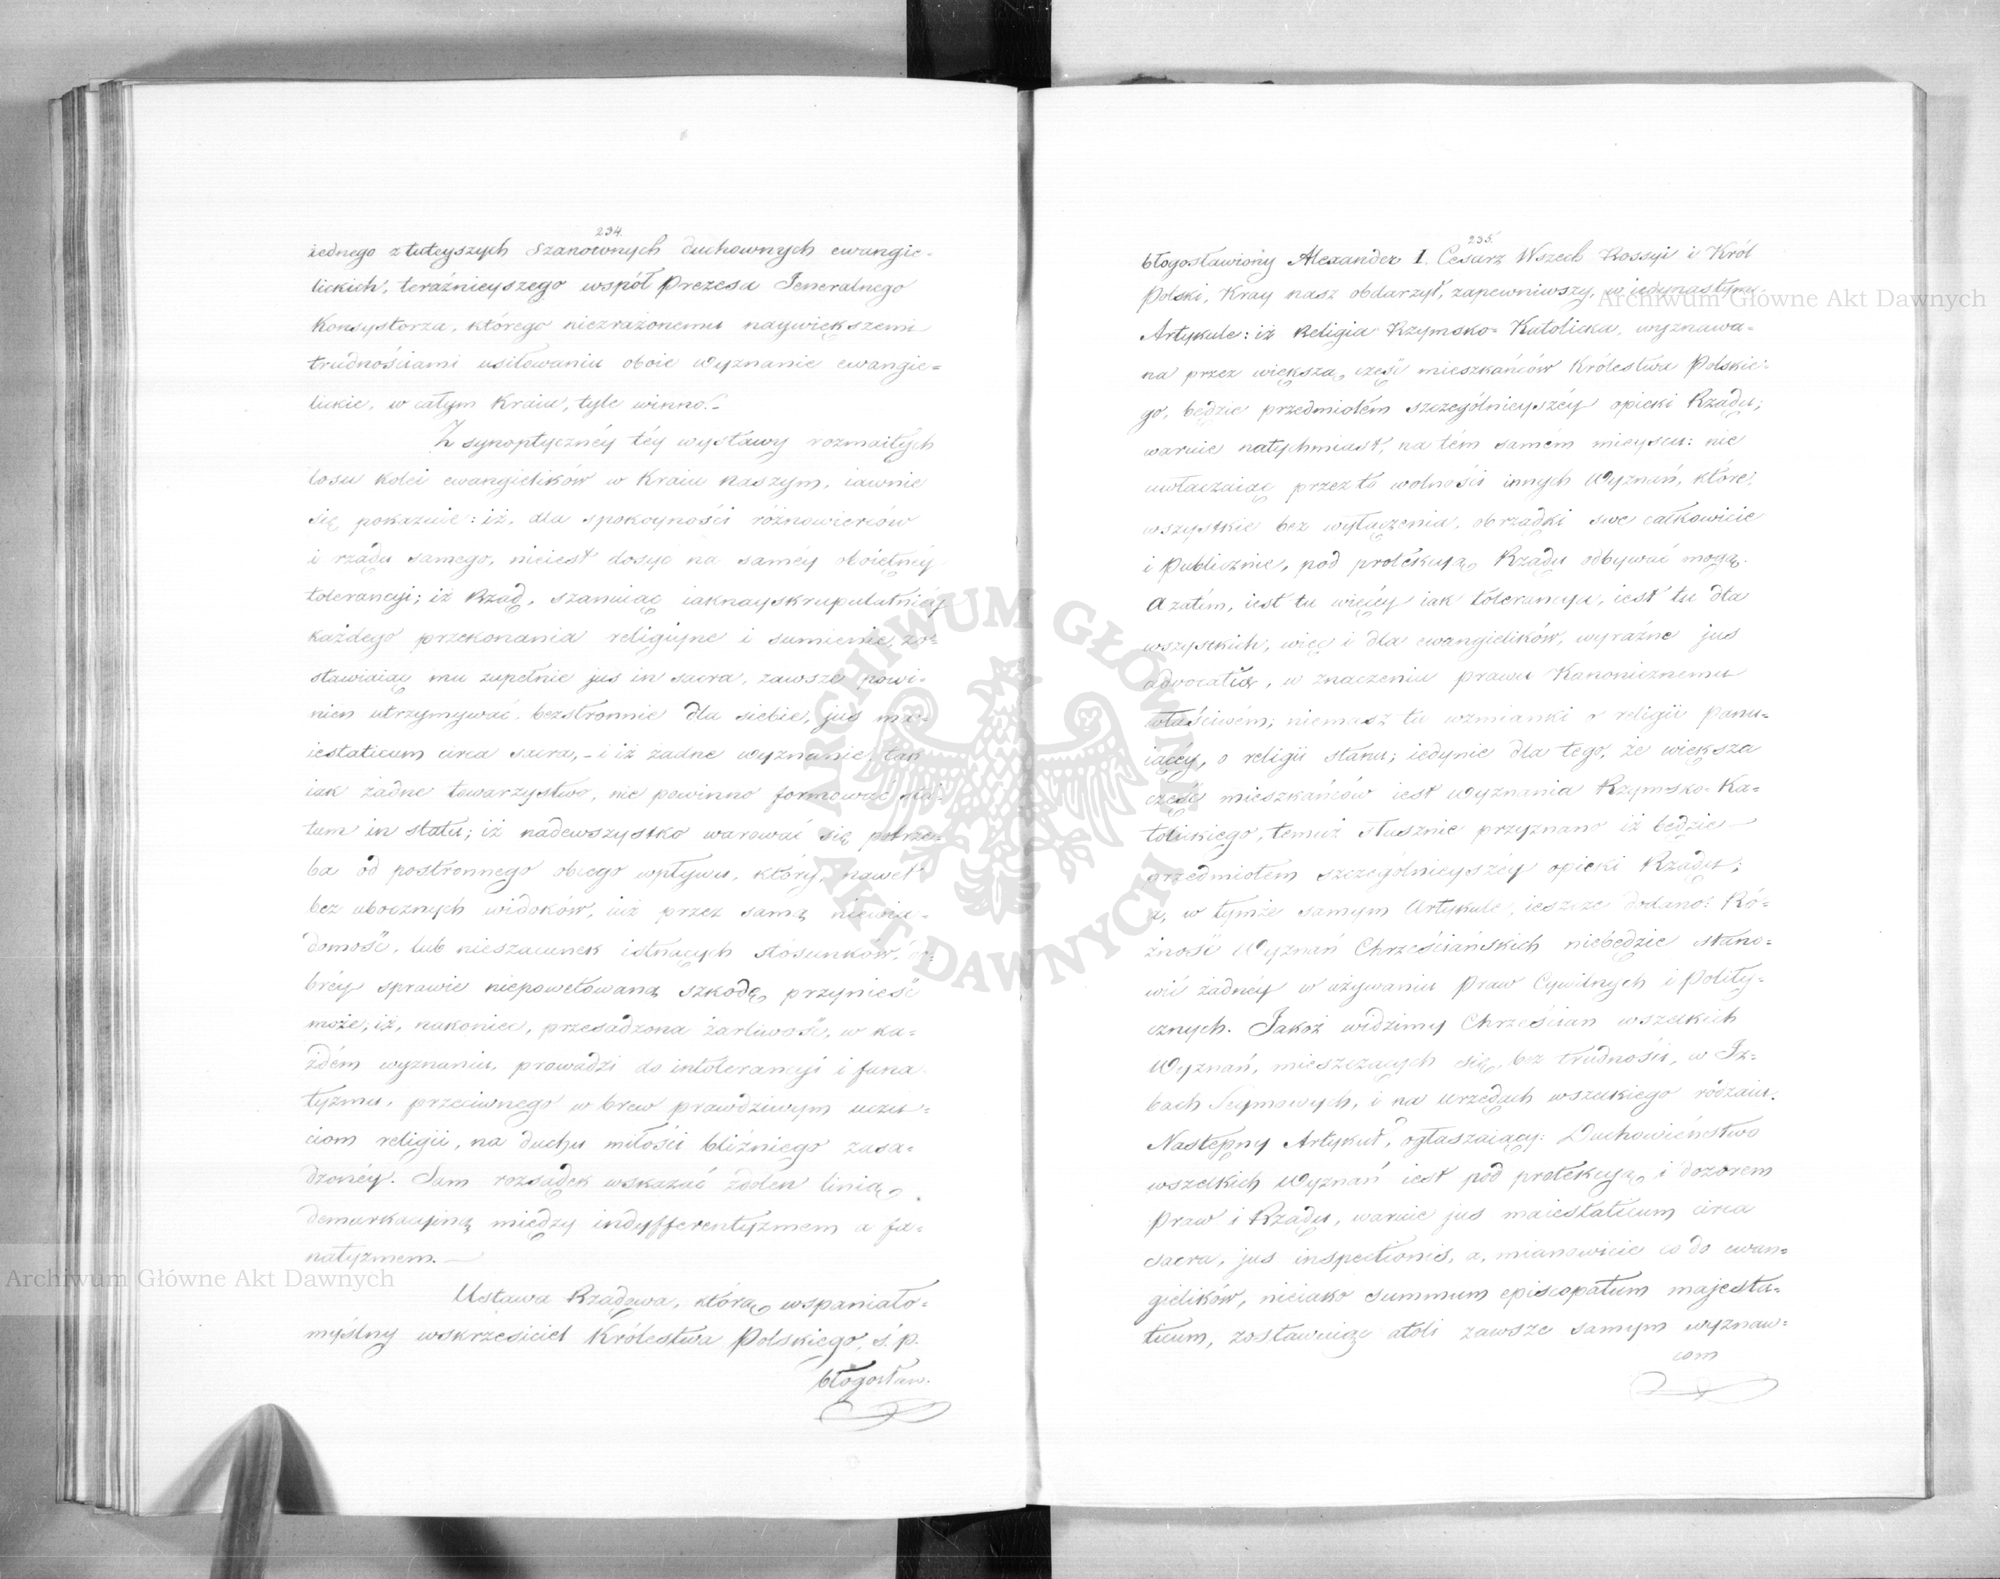 234.
iednego z tuteyszych Szanownych duchownych ewangie-
lickich, teraźnieyszego współ Prezesa Jeneralnego
Konsystorza, którego niezrażonemu naywiększemi
trudnościami usiłowaniu oboie Wyznanie ewangie=
lickie, w całym Kraiu, tyle winno.–
Z synoptycznéy téy wystawy rozmaitych
losu kolei ewangielików w Kraiu naszym, iawnie
się pokazuie: iż, dla spokoyności różnowierców
i rządu samego, nieiest dosyć na saméy oboiętnéy
tolerancyi; iż Rząd, szanuiąc iaknayskrupulatniéy
każdego przekonania religiyne i sumienie, zo=
stawiaiąc mu zupełnie jus in sacra, zawsze powi-
nien utrzymywać bezstronnie dla siebie, jus ma-
iestaticum circa sacra,– i iż żadne Wyznanie, tak
iak żadne towarzystwo, nie powinno formować sta-
tum in statu; iż nadewszystko warować się potrze-
ba od postronnego obcego wpływu, który, nawet
bez ubocznych widoków, iuż przez samą niewia-
domość, lub nieszacunek istnących stosunków, do-
bréy sprawie niepowetowaną szkodę, przynieść
może; iż, nakoniec, przesadzona żarliwość, w ka-
żdém wyznaniu, prowadzi do intolerancyi i fana
tyzmu, przeciwnego wbrew prawdziwym uczu-
ciom religii, na duchu miłości bliźniego zasa-
dzonéy. Sam rozsądek wskazać zdolen linią,
demarkacyiną między indyfferentyzmem a fa-
natyzmem.—
Ustawa Rządowa, którą, wspaniało-
myślny wskrzesiciel Królestwa Polskiego, ś.p.
błogosław.
235.
błogosławiony Alexander I. Cesarz Wszech Rossyi i Król
Polski, Kray nasz obdarzył, zapewniwszy, w iedynastym
Artykule: iż Religia Rzymsko-Katolicka, wyznawa-
na przez większą część mieszkańców Królestwa Polskie-
go, będzie przedmiotem szczególnieyszéy opieki Rządu;
waruie natychmiast, na tém samém mieyscu: nie
uwłaczaiąc przez to wolności innych Wyznań, które,
wszystkie bez wyłączenia, obrządki swe całkowicie
i Publicznie, pod protekcyą, Rządu odbywać mogą.
A zatém, iest tu więcéy iak tolerancya, iest tu dla
wszystkich, więc i dla ewangielików, wyraźne jus
advocatiæ, w znaczeniu prawu Kanonicznemu
właściwém; niemasz tu wzmianki o religii panu-
iącéy, o religii stanu; iedynie dla tego, że większa
część mieszkańców iest Wyznania Rzymsko-Ka-
tolickiego, temuż słusznie przyznano iż będzie—
przedmiotem szczególnieyszéy opieki Rządu;
a, w tymże samym Artykule, ieszcze dodano: Ró-
żność Wyznań Chrześciańskich niebędzie stano-
wić żadnéy w używaniu Praw Cywilnych i Polity-
cznych. Jakoż widzimy Chrześcian wszelkich
Wyznań, mieszczących się, bez trudności, w Iz-
bach Seymowych, i na urzędach wszelkiego rodzaiu.
Następny Artykuł, ogłaszaiący: Duchowieństwo
wszelkich Wyznań iest pod protekcyą, i dozorem
Praw i Rządu, waruie jus maiestaticum circa
sacra, jus inspectionis, a, mianowicie co do ewan-
gielików, nieiako summum episcopatum majesta-
ticum, zostawuiąc atoli zawsze samym wyznaw-
com
Archiwum Główne Akt Dawnych
Archiwum Główne Akt Dawnych
ARCHIWUM GŁÓWNE AKT DAWNYCH